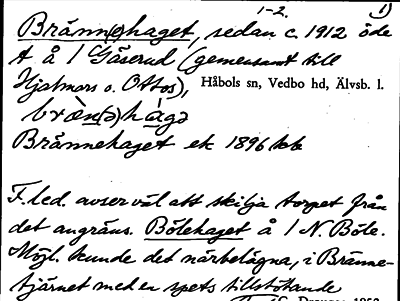 1-2. 1)
Bränn(e)haget, sedan c. 1912 öde
t å 1 Gåserud (gemensamt till
Hjalmars o. Ottos), Håbols sn, Vedbo hd, Älvsb. l.
bræ̀n(ə)hàgə
Brännehaget ek 1896 kb
F. led. avser väl att skilja torpet från
det angräns. Bölehaget å 1 N. Böle.
Möjl. kunde det närbelägna, i Bränne-
tjärnet med en spets tillstötande